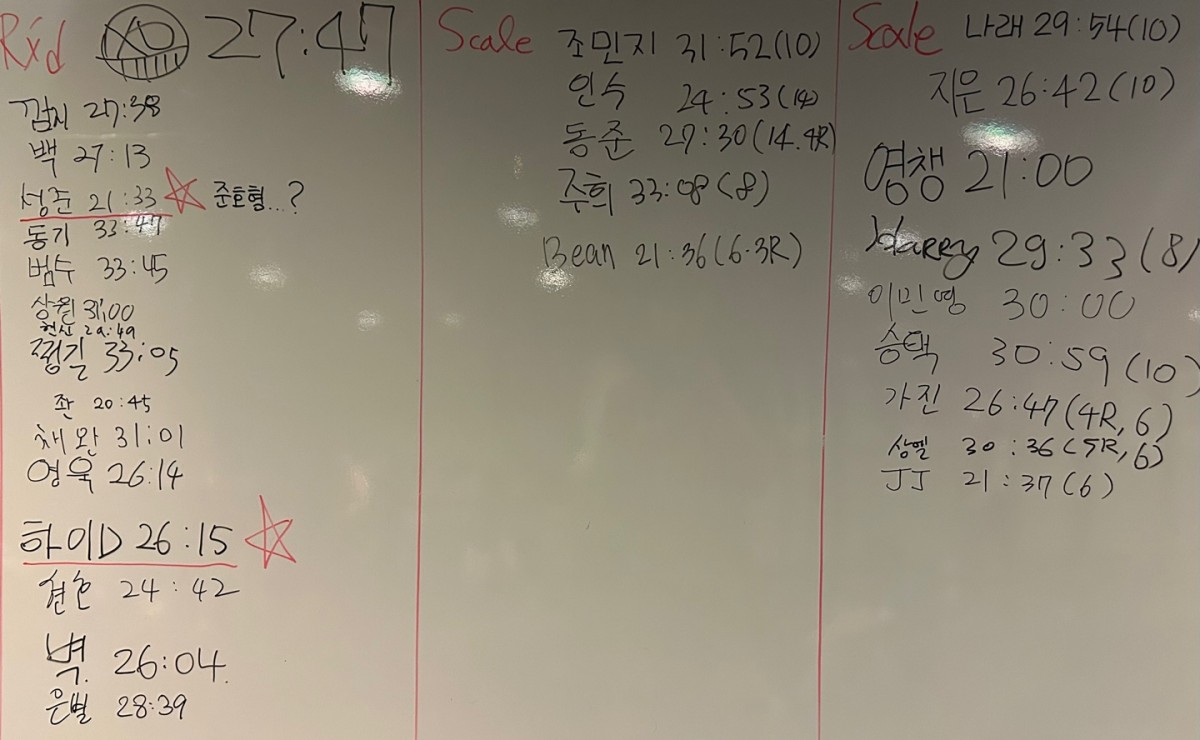 Rxd 27:47
깜시 27:38
백 27:13
성준 21:33 준호형...?
동기 33:47
범수 33:45
상월 31:00
현산 29:49
쩡길 33:05
좐 20:45
채완 31:01
영욱 26:14
하이D 26:15
24:42
벽 26:04
은별 28:39
Scale 조민지 31:52(10)
인수 24:53(14)
동준 27:30(14.4R)
주희 33:08(8)
Bean 21:36(6.3R)
Scale 나래 29:54(10)
지은 26:42(10)
영챙 21:00
Harry 29:33(8)
이민영 30:00
승택 30:59(10)
가진 26:47(4R,6)
상멜 30:36(5R,6)
JJ 21:37(6)